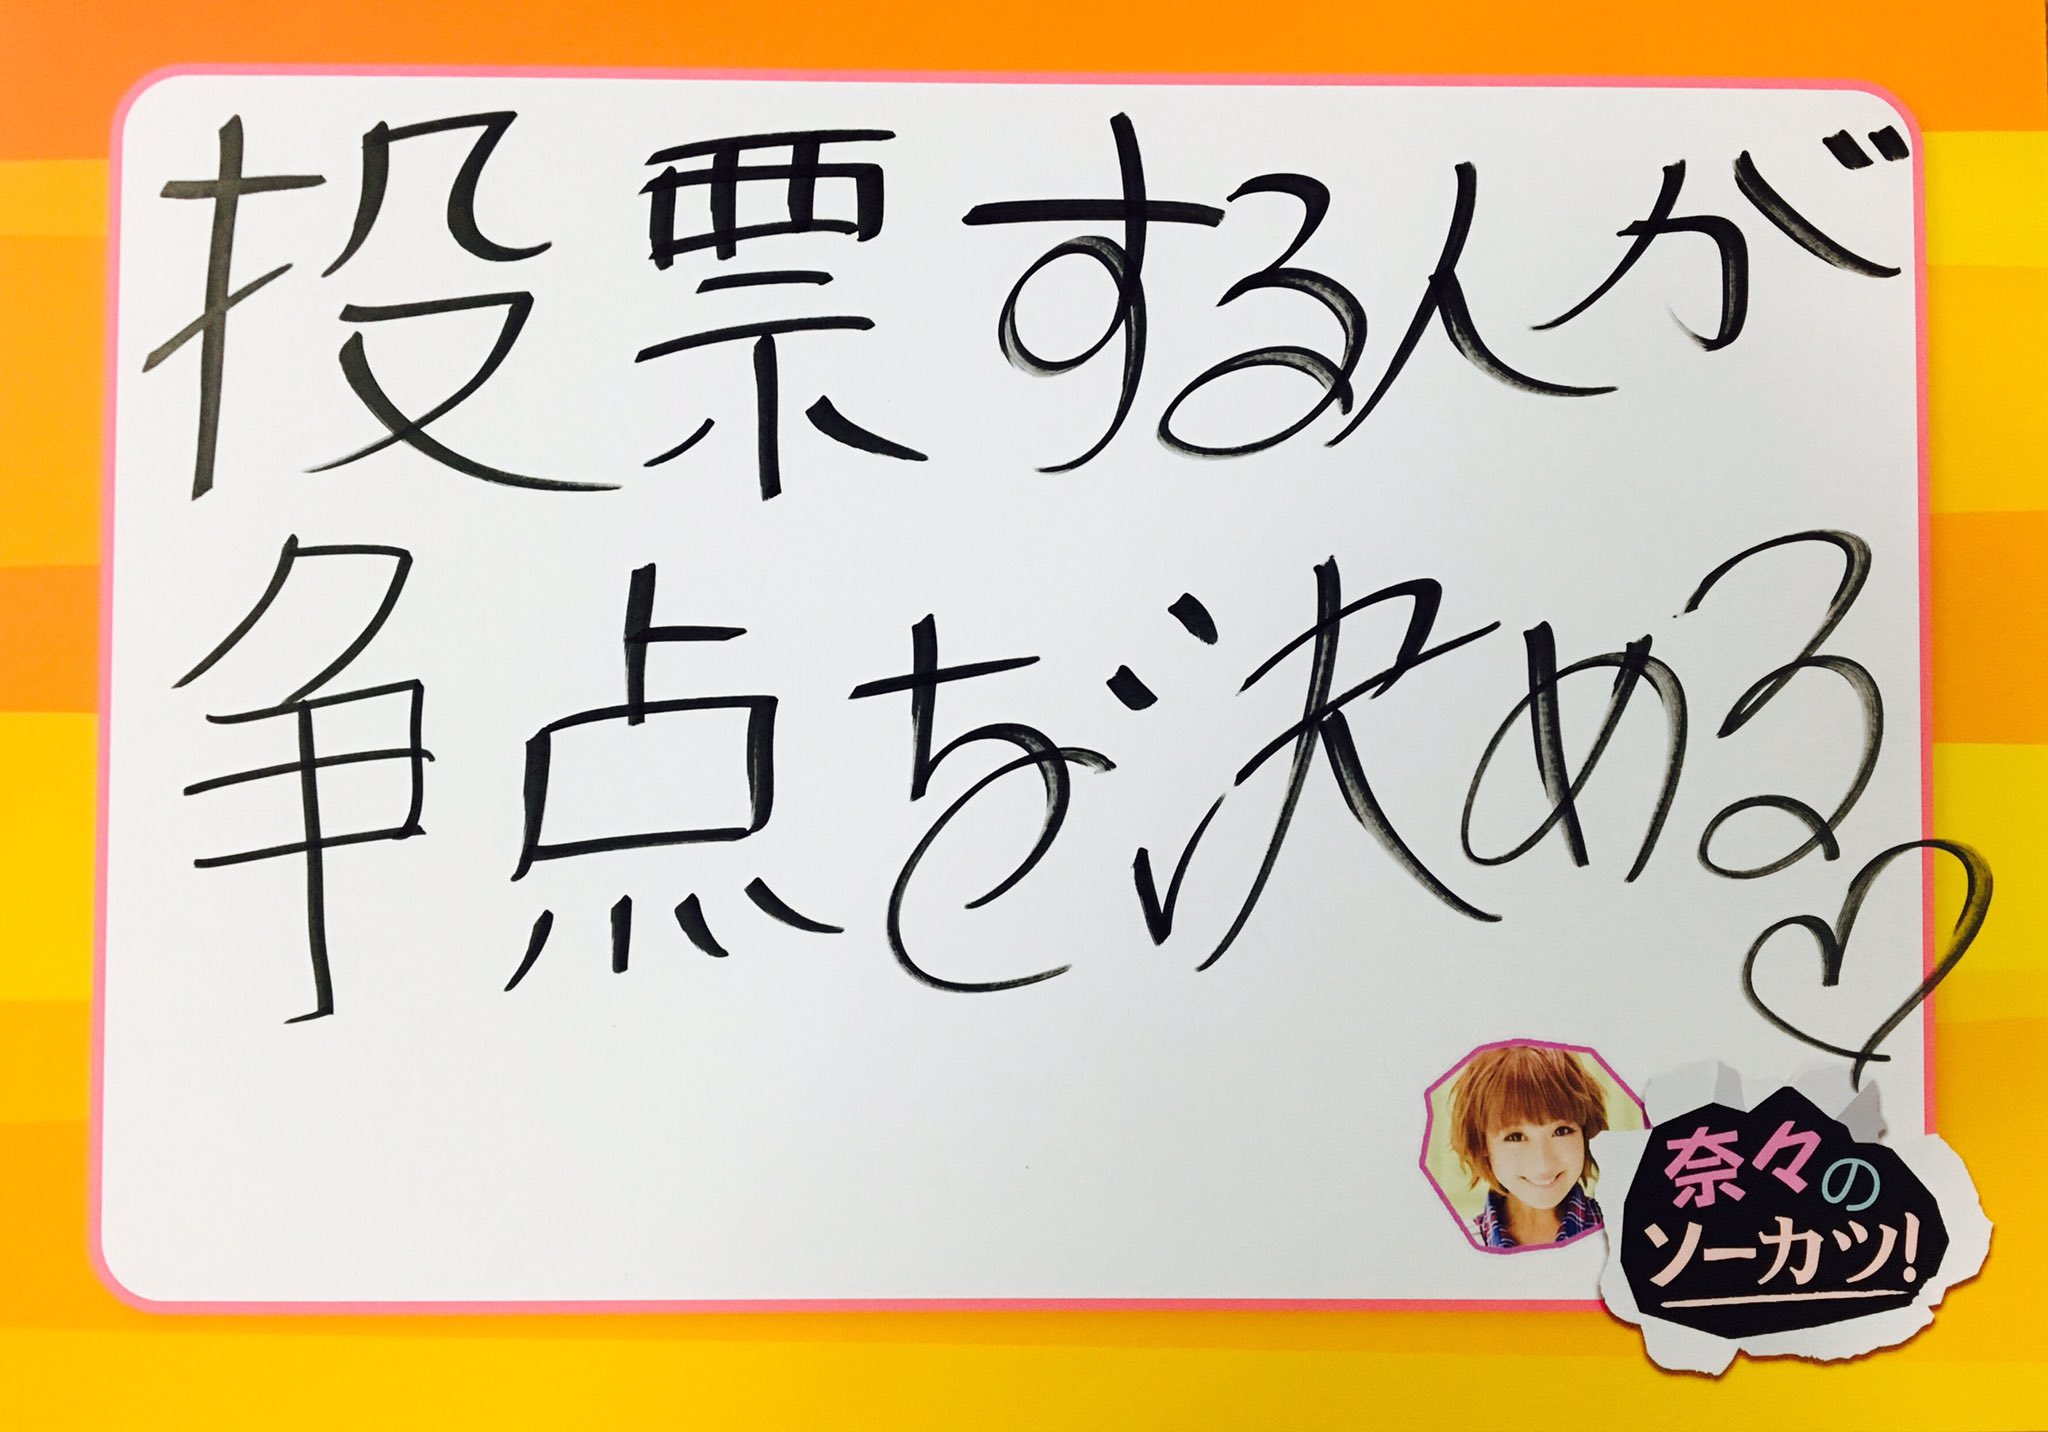 投票する人が
争点を決める♡
奈々の
ソーカツ!